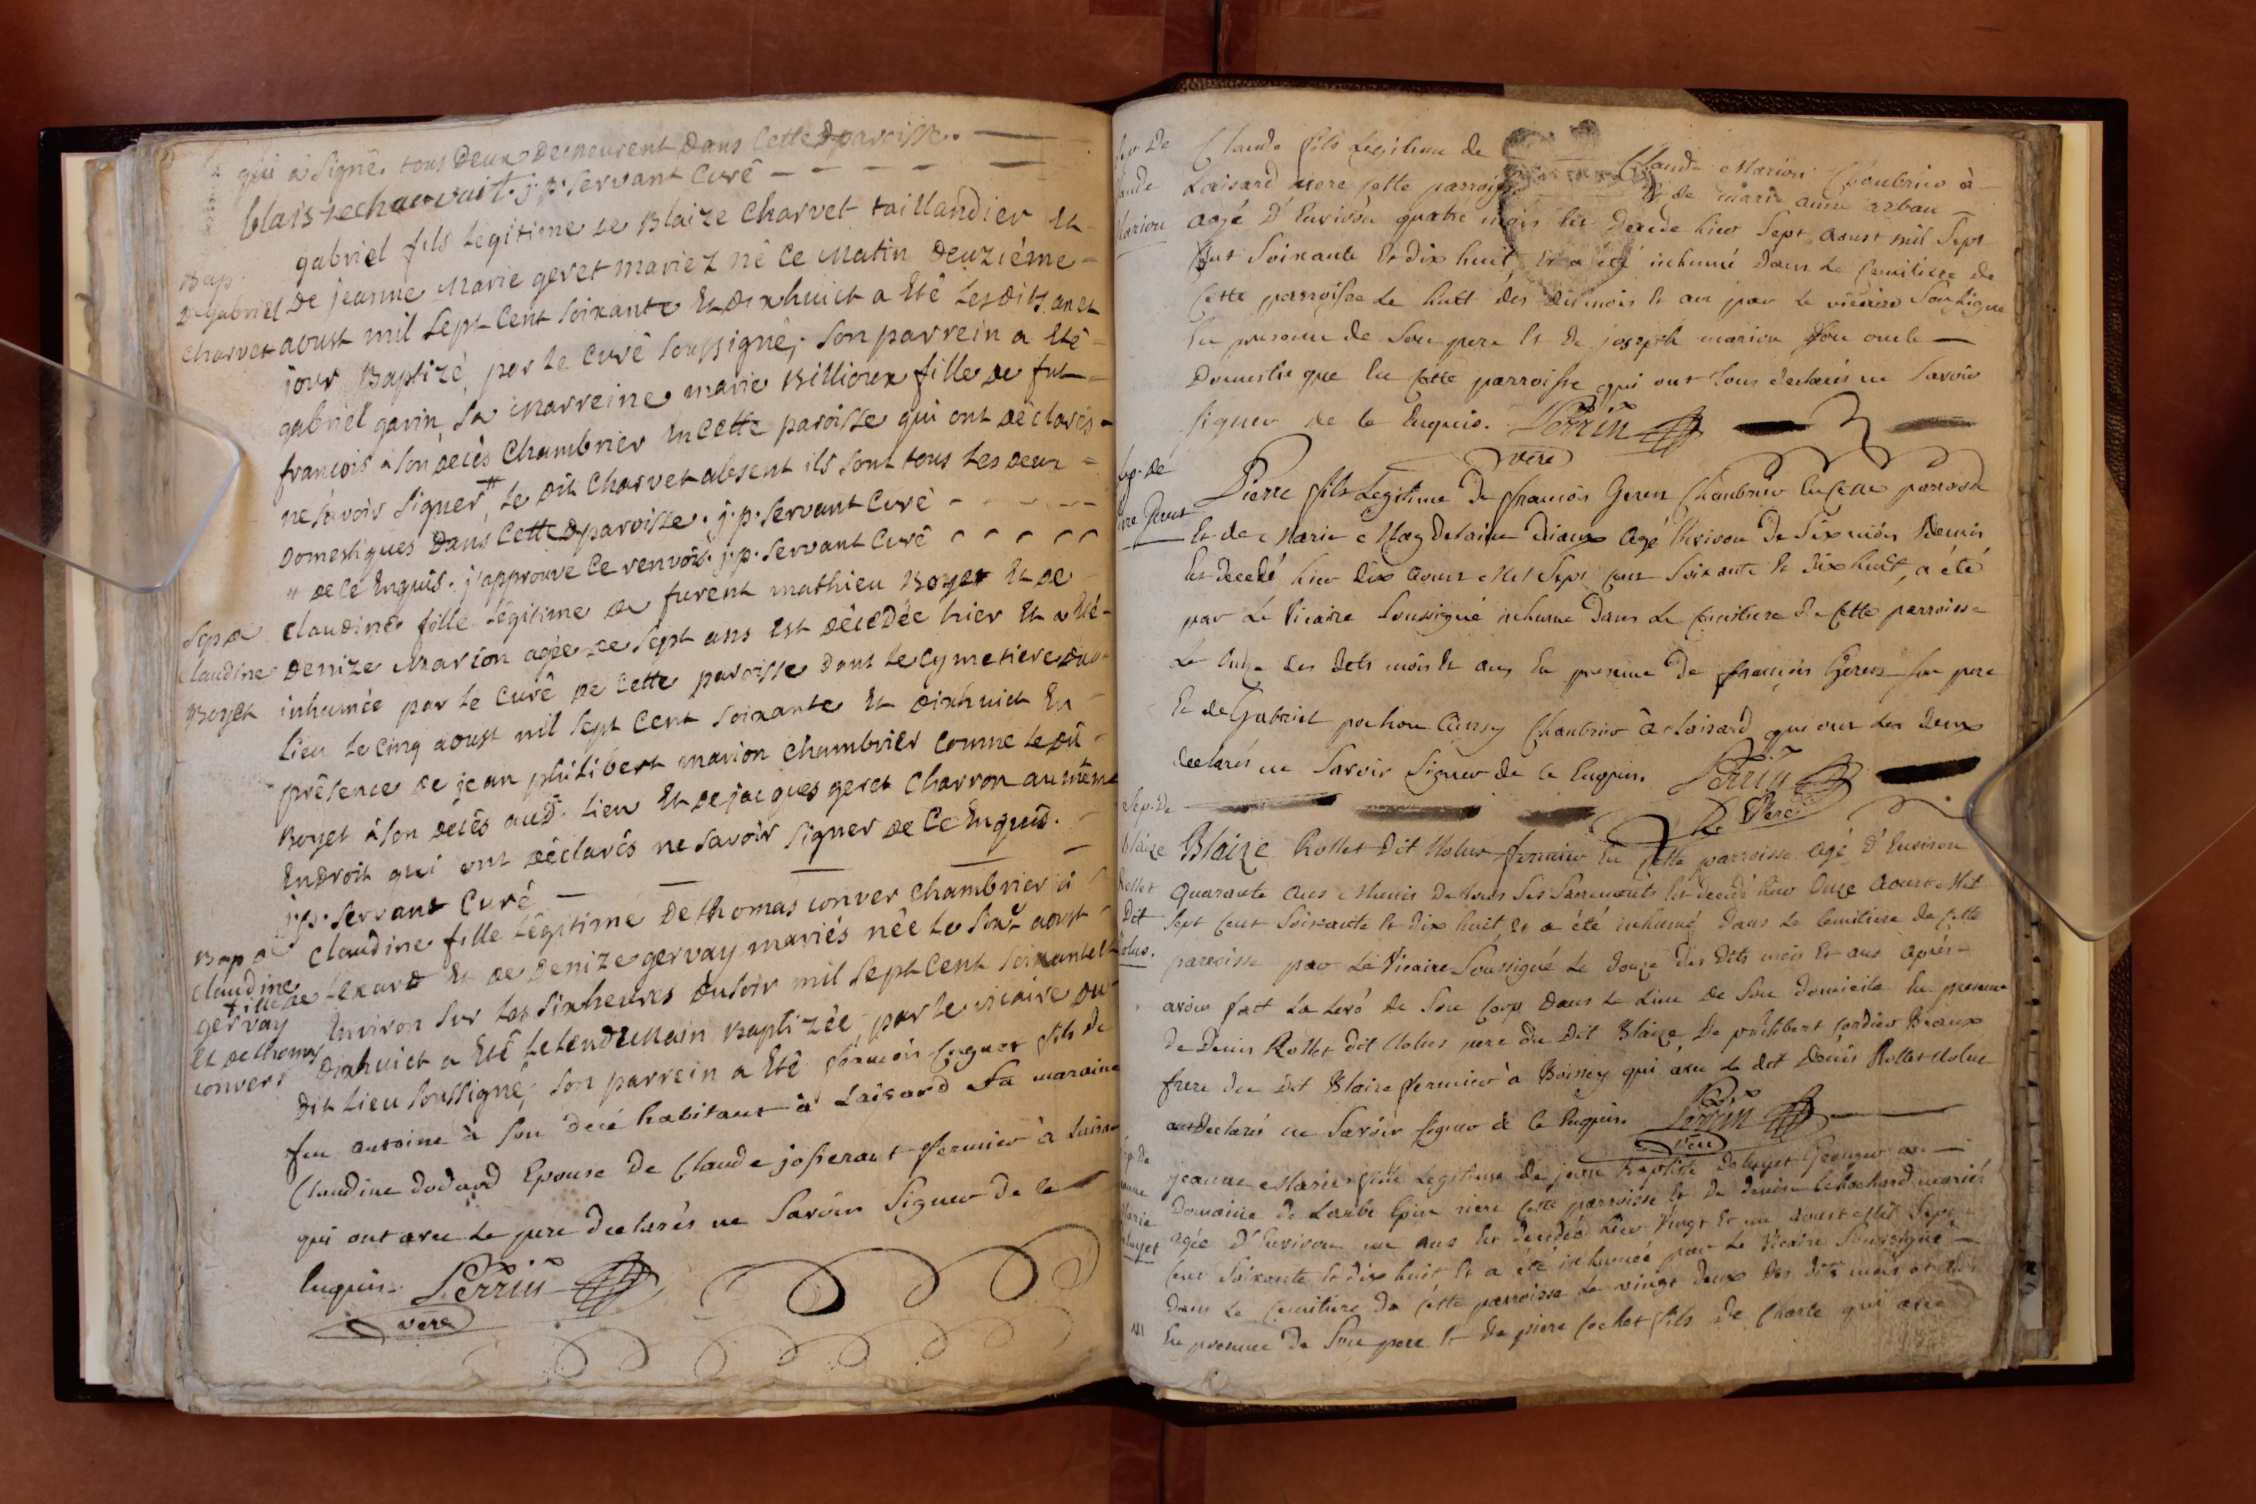 qui a signé. tous deux demeurent dans cette paroisse.
blaise charvait. j. p. servant curé
Bap.
gabriel fils legitime de Blaize Charvet taillandier et
De gabriel
de jeanne Marie geret mariez né ce matin deuziéme
charvet
aoust mil sept cent soixante et dixhuict a eté les dits an et
jour Baptizé par le curé soussigné; son parrein a eté
gabriel gavin, sa marreine marie Billioux fille de fut
francois à son decès chambrier en cette paroisse qui ont déclarés
ne sçavoir signer # le dit charvet absent ils sont tous les deux
Domestiques dans cette paroisse. j. p. servant curé
" de ce enquis. j'approuve ce renvoit. j. p. servant curé
Sep. de
claudine fille legitime de furent mathieu Boyet et de
claudine
Denize Marion agée de sept ans est décédée hier et a eté
Boyet
inhumée par le curé de cette paroisse dans le cymetiere du
lieu le cinq aoust mil sept cent soixante et dixhuict en
présence de jean philibert marion chambrier comme le dû
Boyet à son decès aud. lieu et de jacques geret charron au même
endroit qui ont déclarés ne savoir signer de ce enquis.
j. p. servant curé
Bap. de
claudine fille légitime de thomas conver chambrier à
claudine
Lexard et de Denize gervay mariés née le six aoust
fille de
gervay
environ sur les sixheures du soir mil sept cent soixante et
et de thomas
dixhuict a eté le lendemain Baptizée par le vicaire du
convers
dit lieu soussigné; son parrein a eté francois fils de
feu antoine à son decé habitant à Laisard sa maraine
Claudine dodard epouse de Claude josserant fermier à
qui ont avec le pere declarés ne savoir signer de ce
enquis. Perrin
vere
Sep. De
Claude fils legitime de Claude Marion Chambrier à
Laisard riere cette parroisse et de marie anne
Marion
aagé d'environ quatre mois est decedé hier sept aoust mil sept
cent soixante et dix huit et a été inhumé dans le cemitiere de
cette parroisse le huit des dit mois et an par le vicaire soussigné
en presence de son pere et de joseph marion son oncle
Domestique en cette parroisse qui ont tous declarés ne savoir
signer de ce enquis. Perrin
vere
Sep. de
Pierre fils Legitime de francois Geren Chambrier en cette parroisse
et de Marie Magdelaine agé environ de six mois
est decedé hier dix aoust Mil Sept cent soixante et dix huit, a été
par le Vicaire Soussigné inhumé dans le cemitiere de cette parroisse
le onze des dits mois et ans en presence de francois Geren son pere
et de Gabriel Chambrier à Laisard qui ont les deux
declarés ne savoir signer de ce enquis. Perrin
Vere
Sep. De
Blaize
Blaize Rollet dit Molus fermier en cette parroisse agé d'environ
Rollet
quarante ans Munis de tous ses sacrements est decedé hier onze aoust Mil
Dit
sept cent soixante et dix huit et a été inhumé dans le cemitiere de cette
Molus.
parroisse par le Vicaire Soussigné le douze des dits mois et ans après
avoir fait la levé de son corp dans le lieu de son domicile en presence
de Denis Rollet dit Molus pere du dit Blaize de philibert cordier Beaux
frere du dit Blaize fermier à Boissey qui avec le dit Denis Rollet Molus
ont declarés ne savoir signer de ce enquis. Perrin
vere
jeanne Marie fille legitime de jean Baptiste Granger au
Marie
domaine de riere cette parroisse et de denise mariés
agée d'environ un ans est decedée hier vingt et un aoust Mil Sept
cent soixante et dix huit et a été inhumée par le Vicaire Soussigné
dans le cemitiere de cette parroisse le vingt deux des dits mois et ans
en presence de son pere et de piere fils de Charle qui avec